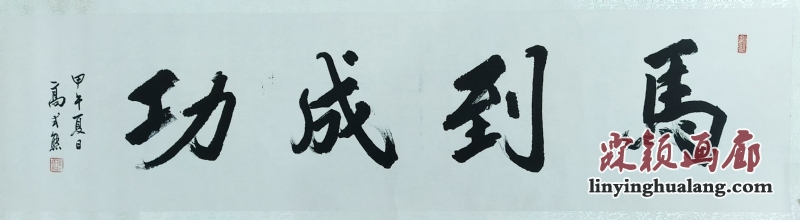 馬到成功
甲午夏日
高式熊
霖颖画廊
linyinghualang.com